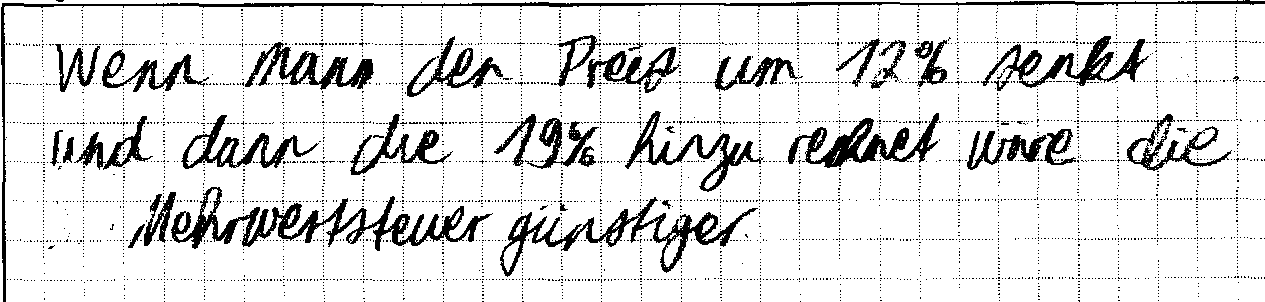 Wenn Mann den Preis um 12% senkt
und dann die 19% hinzu rechnet wäre die
Mehrwertsteuer günstiger.